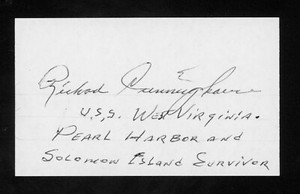 Richard Cunningham
U.S.S. West Virginia.
Pearl Harbor and
Solomon Island Survivor